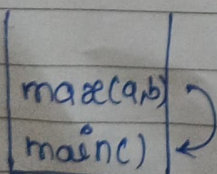 max(a,b)
main()